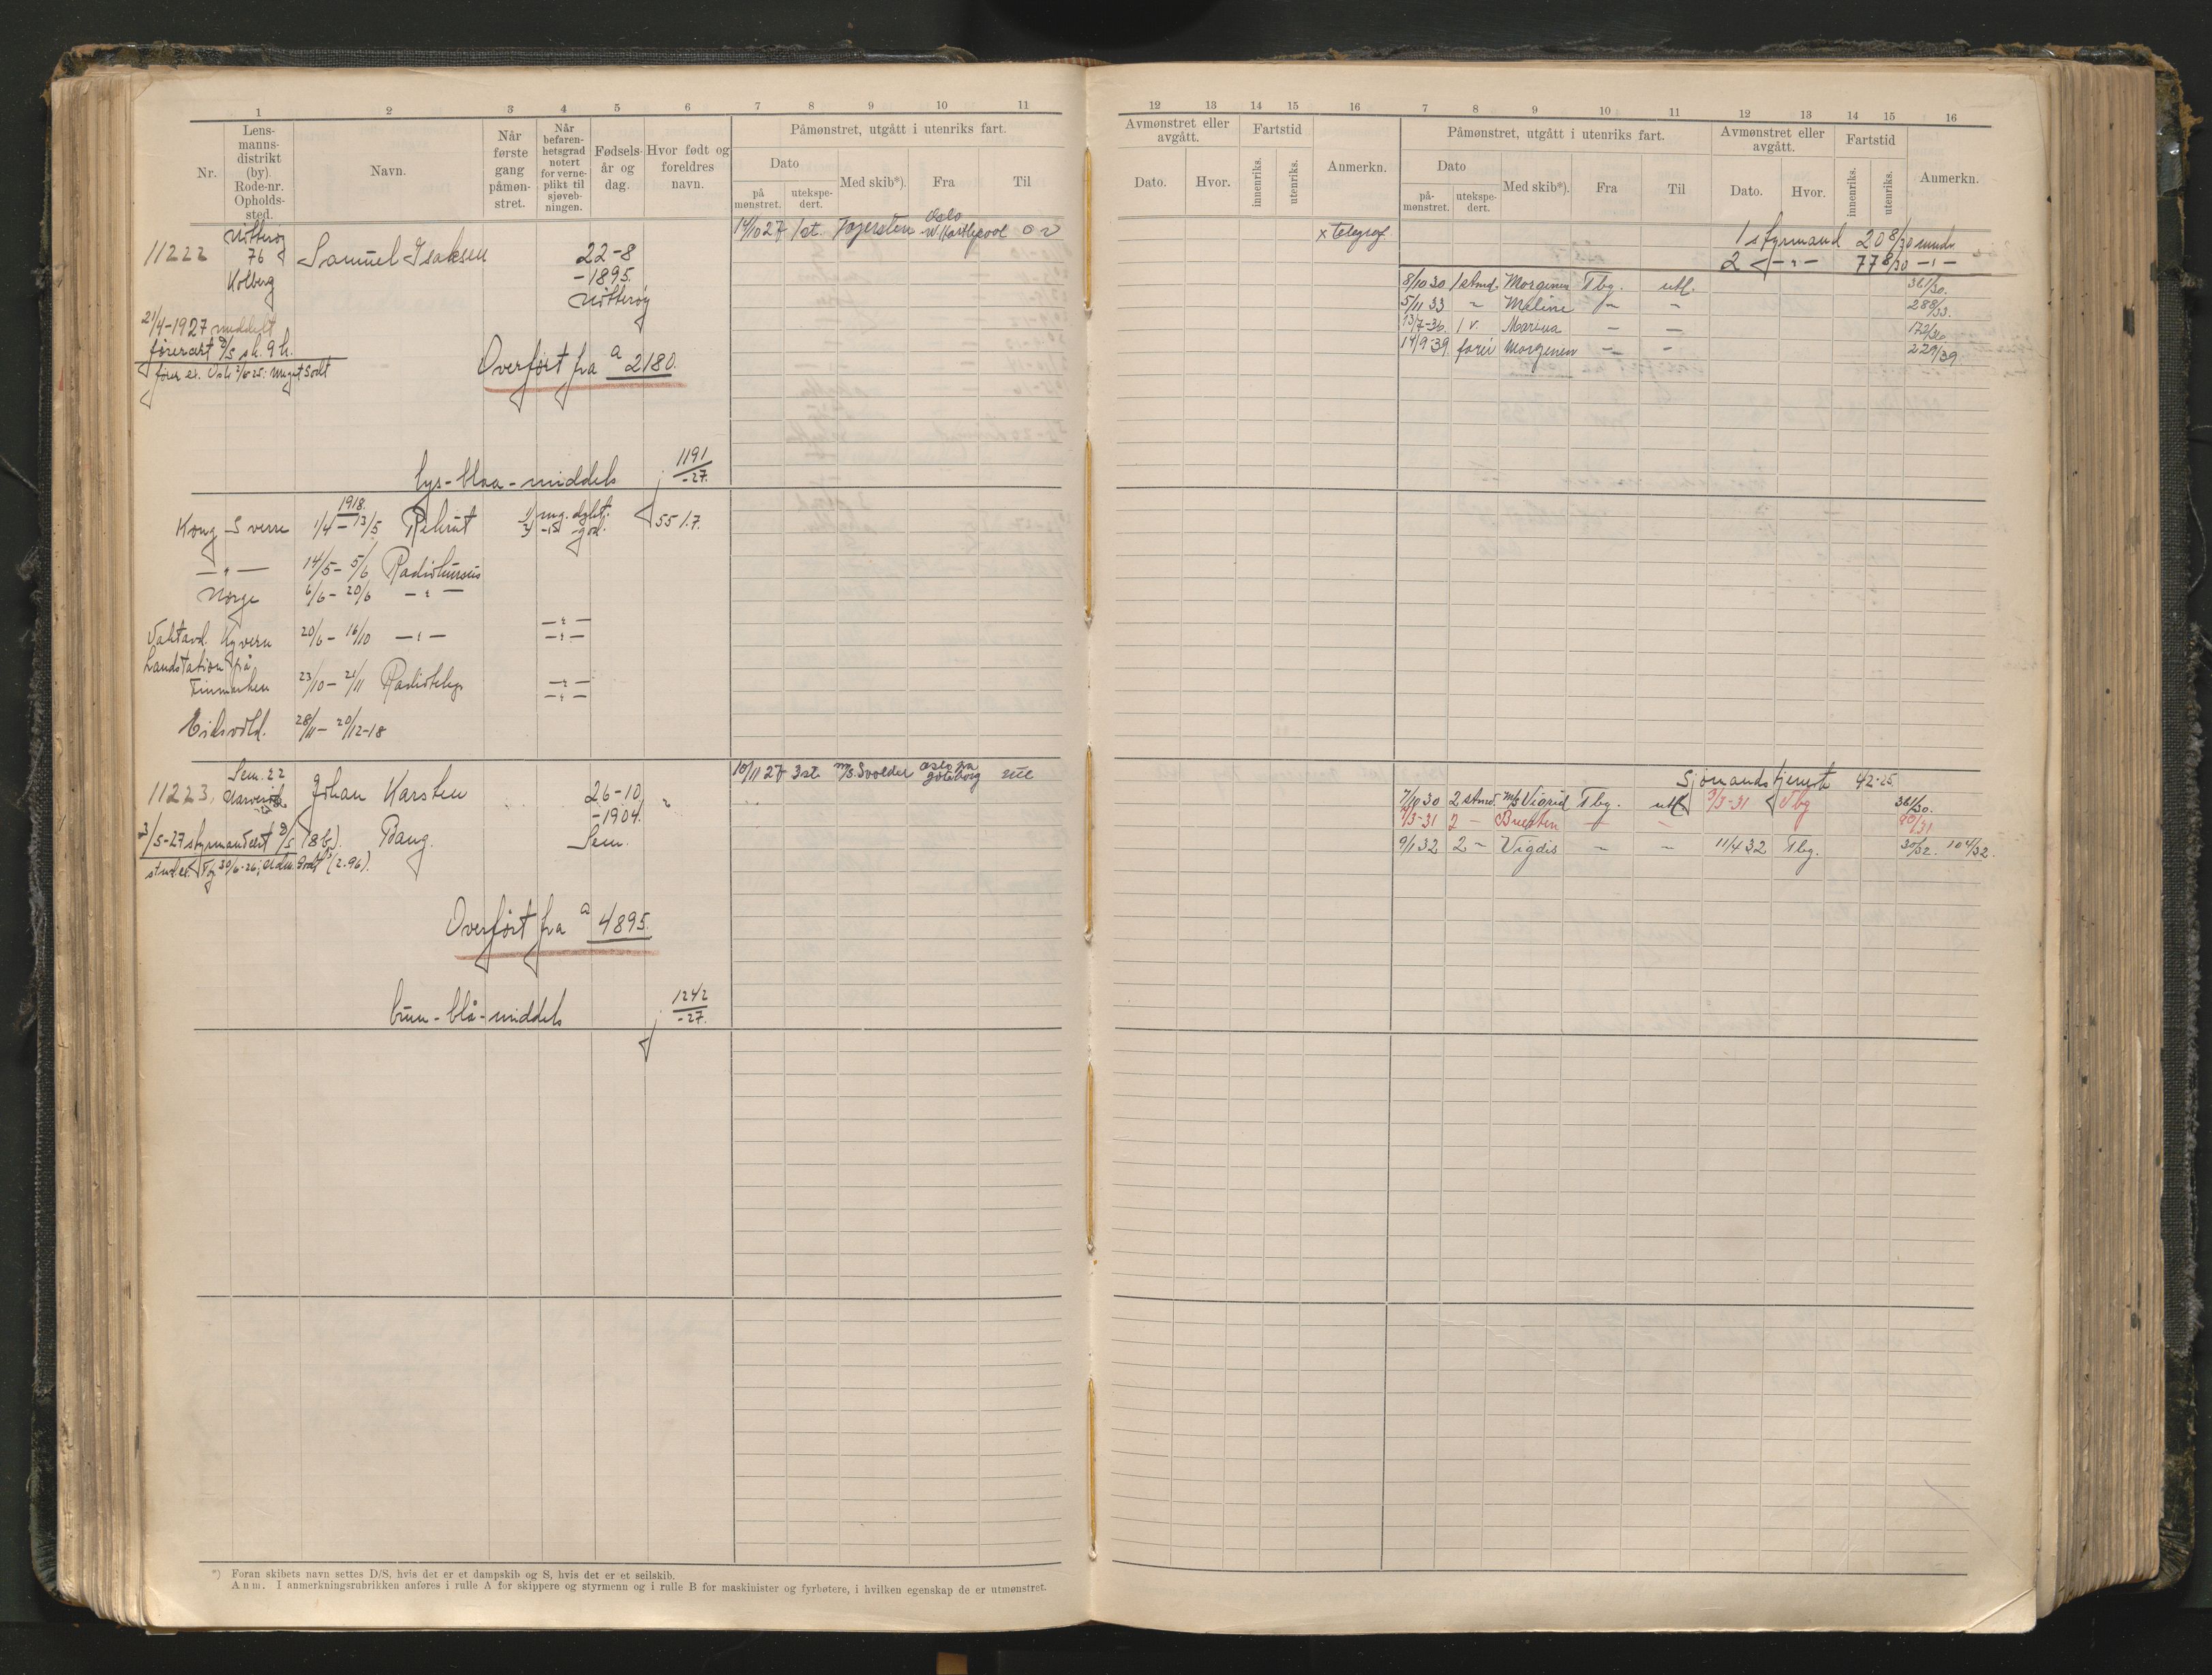 1 2 3 4 5 6 7 8 9 10 11
Nr.
Lens-
manns-
distrikt
(by).
Rode-nr.
Opholds-
sted.
Navn.
Når
første
gang
påmøn-
stret.
Når
befaren-
hetsgrad
notert
for verne-
plikt til
sjøveb-
ningen.
Fødsels-
år og
dag.
Hvor født og
foreldres
navn.
Påmønstret, utgått i utenriks fart.
Dato
på
mønstret.
utekspe-
dert.
Med skib*).
Fra
Til
11222
Nøtterøy
76
Kolberg
Samuel Isaksen
22-8
-1895.
Nøtterøy
14/10 27 1 st. Jojersten Oslo
W. Hartlepool
21/4-1927 meddelt
førercert
Overført fra a 2180.
lys-blaa-middels 1191/-27.
Kong Sverre 1918. 1/4-13/5 Rekrut 55 1.7.
-"- 14/5-5/6 Radiokursus
Norge 6/6-20/6 -"-
20/6-16/10 -"-
Landstation på
Finmarken 23/10-21/11 Radioteleg
Eidsvold. 28/11-20/12-18
11223.
Sem. 22
Johan Karsten
Bang.
26-10
-1904.
Sem.
10/11 27 3 st. m/s. Svolder Oslo via
Gøteborg
3/5-27 styrmandcert
Overført fra a 4895.
brun-blå-middels 1242/-27.
*) Foran skibets navn settes D/S, hvis det er et dampskib og S, hvis det er et seilskib.
Anm. I anmerkningsrubrikken anføres i rulle A for skippere og styrmenn og i rulle B for maskinister og fyrbøtere, i hvilken egenskap de er utmønstret.
12 13 14 15 16 7 8 9 10 11 12 13 14 15 16
Avmønstret eller
avgått.
Dato.
Hvor.
Fartstid
innenriks.
utenriks.
Anmerkn.
Påmønstret, utgått i utenriks fart.
Dato
på-
mønstret.
utekspe-
dert.
Med skib*).
Fra
Til
Avmønstret eller
avgått.
Dato.
Hvor.
Fartstid
innenriks.
utenriks.
Anmerkn.
x telegraf.
1 styrmand 20 8/30 mndr
2 -"- 77 8/30 -"-
8/10 30 1 stmd. Morginen Tbg. utl. 361/30.
5/11 33 " Maline - - 288/33.
13/7-36 1 v. - - 172/36
14/9-39 fører Morgenen - - 229/39.
Sjømandstjeneste 42-25.
7/10 30 2 stmd. M/S Vigrid Tbg. utl. 9/3-31 Tbg 361/30.
9/3-31 2 - - - 90/31
9/1 32 2 - Vigdis - - 11/4 32 Tbg. 30/32. 104/32.